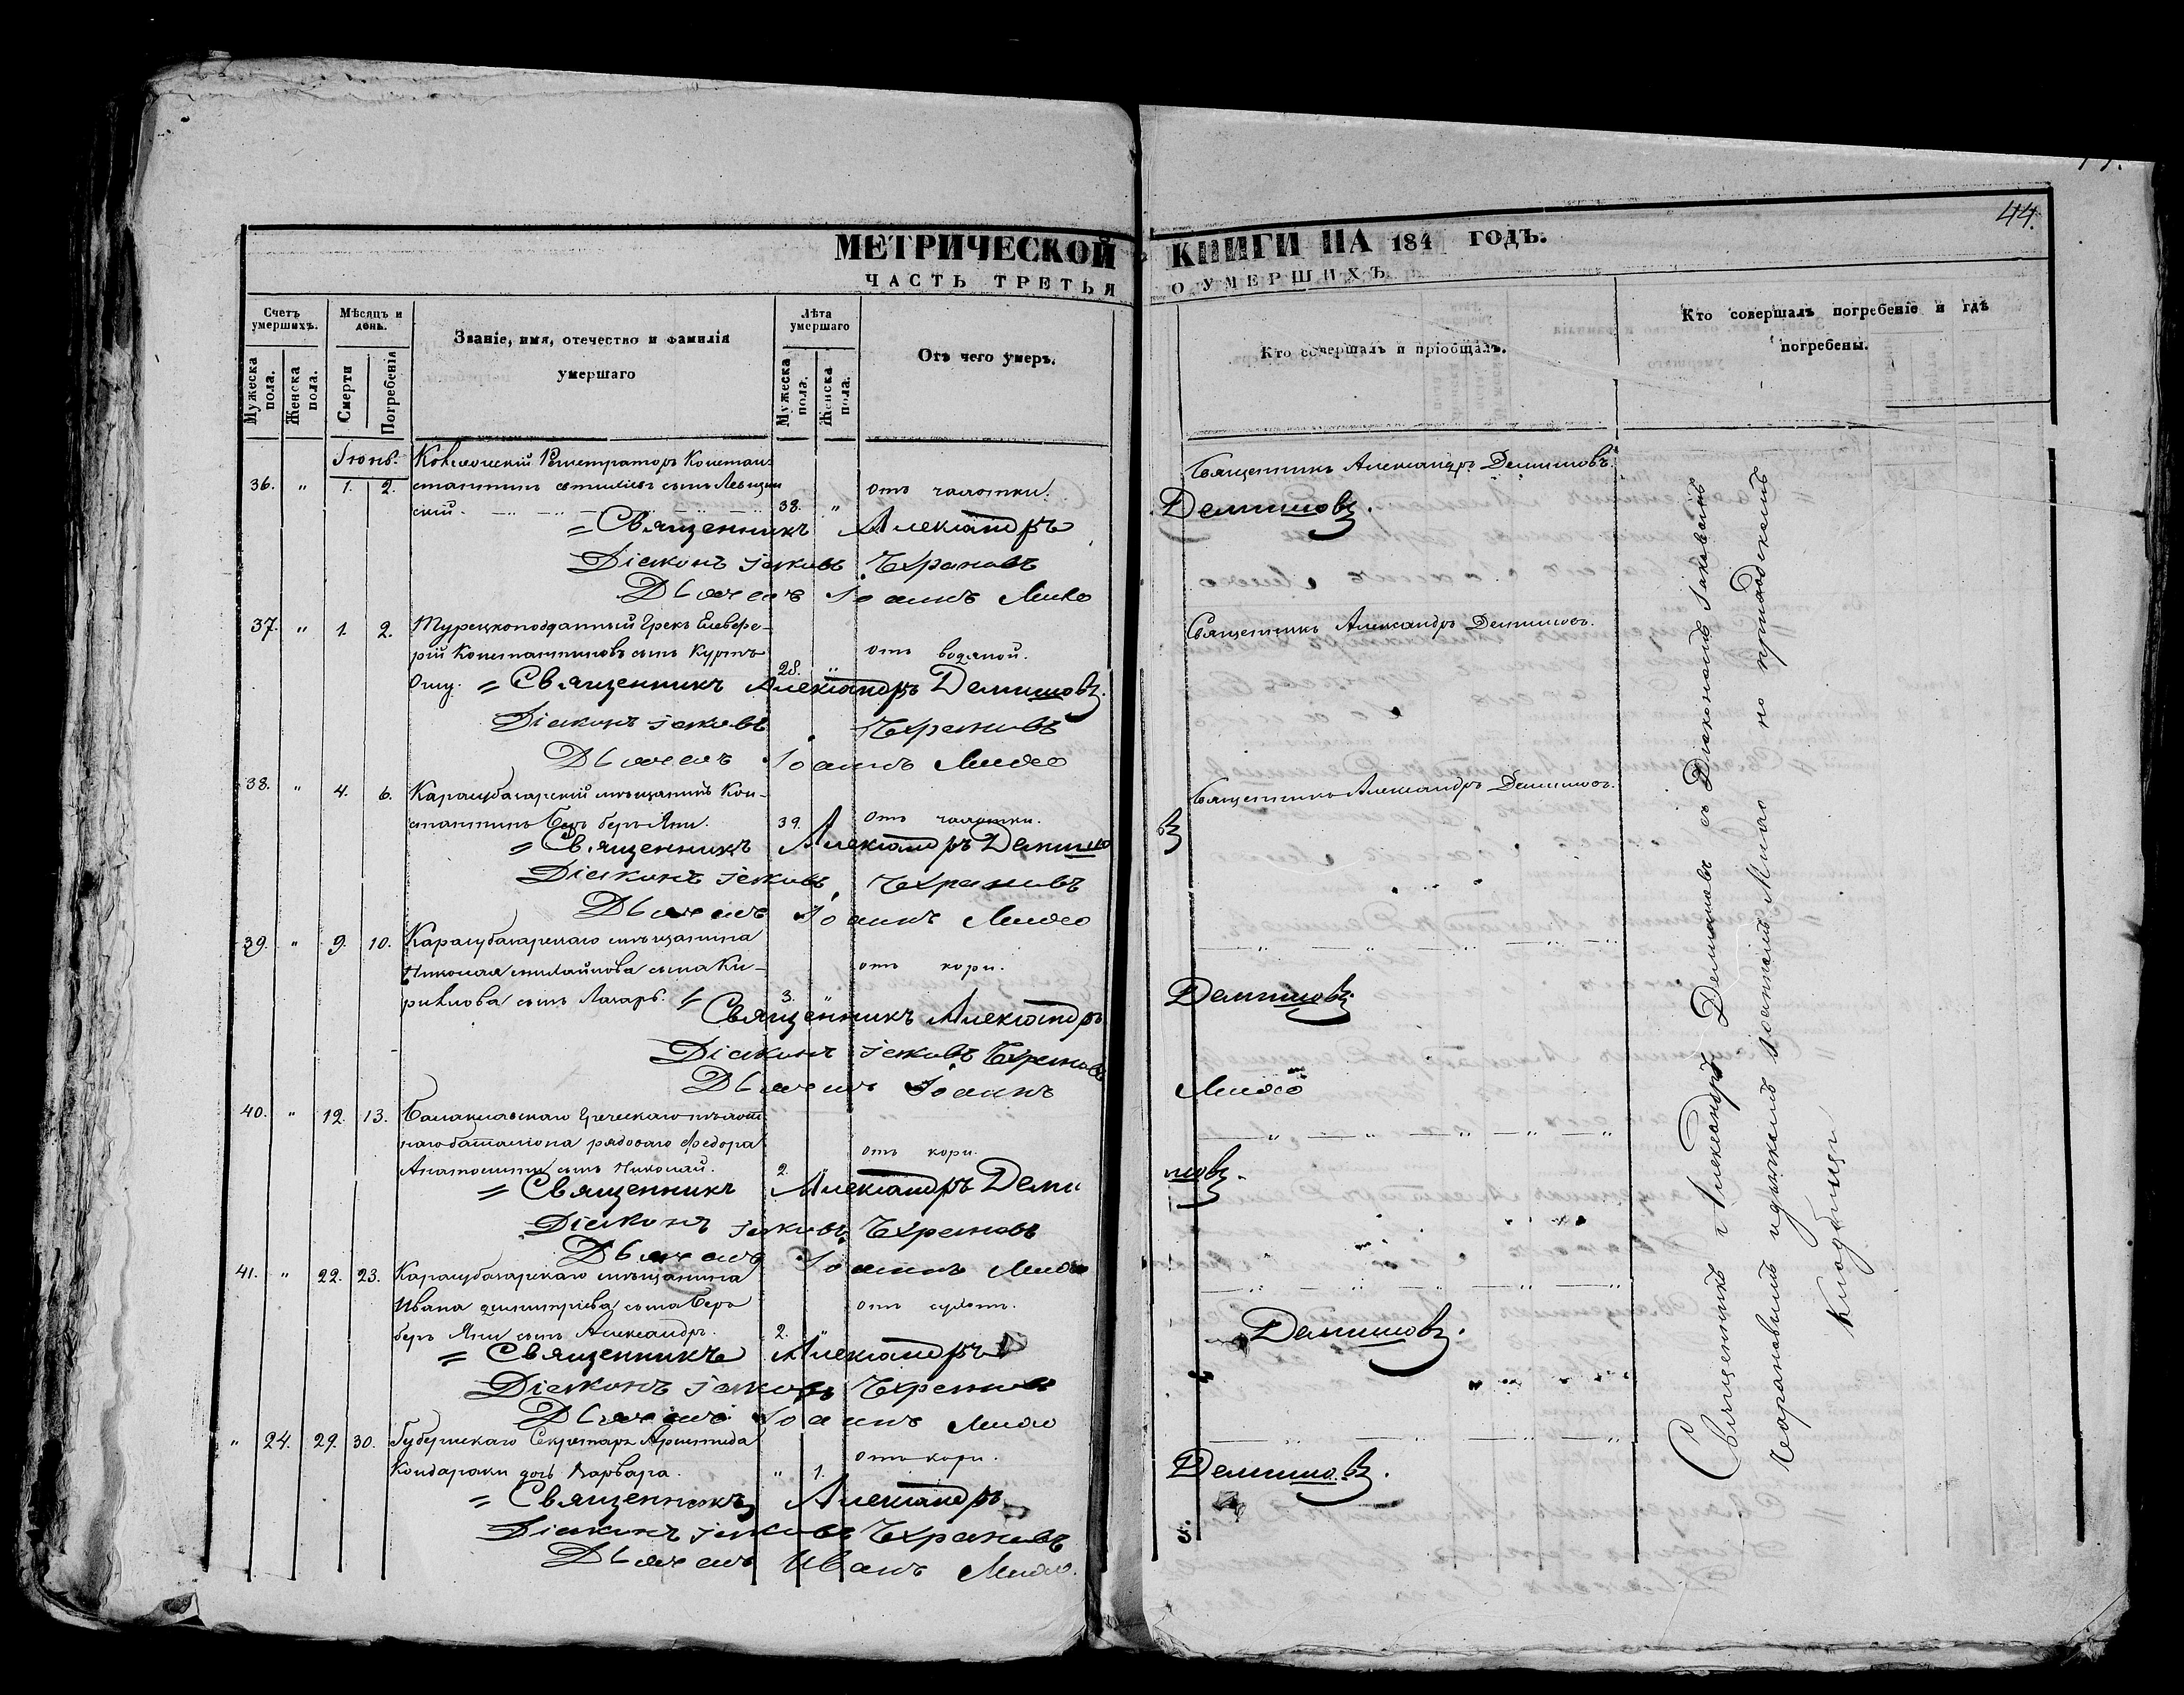 44.
МЕТРИЧЕСКОЙ КНИГИ НА 184 ГОДЪ.
ЧАСТЬ ТРЕТЬЯ О УМЕРШИХЪ
Счетъ умершихъ.
Мужеска пола.
Женска пола.
Мѣсяцъ и день.
Смерти
Погребенія
Званіе, имя, отечество и фамилія умершаго
Лѣта умершаго
Мужеска пола.
Женска пола.
Отъ чего умеръ.
Кто совершалъ и пріобщалъ.
Кто совершалъ погребеніе и гдѣ погребены.
Іюнь.
36. " 1. 2. Коллежскій Регистраторъ Констан-
стантинъ сынъ Левицкій
скій. 38. " отъ чахотки. Священникъ Александръ Демишовъ.
= Священникъ Александръ Демишовъ.
Діаконъ Іаковъ Чхрановъ
Дьячекъ Іоаннъ Мило
37. " 1. 2. Турецкоподданный Грекъ Елевфе-
рій Константиновъ сынъ Куртъ
Оглу. 28. " отъ водяной. Священникъ Александръ Демишовъ.
= Священникъ Александръ Демишовъ.
Діаконъ Іаковъ Чхрановъ
Дьячекъ Іоаннъ Мило
38. " 4. 6. Карасубазарскій мѣщанинъ Кон-
стантинъ Беръ беръ Яни. 39. отъ чахотки. Священникъ Александръ Демишовъ.
= Священникъ Александръ Демишовъ
Діаконъ Іаковъ Чхрановъ
Дьячекъ Іоаннъ Мило
39. " 9. 10. Карасубазарскаго мѣщанина
Николая Михайлова сына Ки-
рилова сынъ Лазарь. 3. " отъ кори.
= Священникъ Александръ Демишовъ.
Діаконъ Іаковъ Чхрановъ
Дьячекъ Іоаннъ Мило
40. " 12. 13. Балаклавскаго Греческаго пѣхот
наго баталіона рядоваго Федора
сынъ Николай. 2. " отъ кори.
= Священникъ Александръ Демишовъ.
Діаконъ Іаковъ Чхрановъ
Дьячекъ Іоаннъ Мило
41. " 22. 23. Карасубазарскаго мѣщанина
Ивана Димитріева сына Беръ
беръ Яни сынъ Александръ. 2. "
= Священникъ Александръ Демишовъ.
Діаконъ Іаковъ Чхрановъ
Дьячекъ Іоаннъ Мило
" 24. 29. 30. Губернскаго Секретаря Аристида
Кондараки дочь Варвара. " 1. отъ кори.
= Священникъ Александръ Демишовъ.
Діаконъ Іаковъ Чхрановъ
Дьячекъ Иванъ Мило.
Священникъ Александръ Демишовъ съ Діакономъ Іаковомъ
Чхрановымъ и дьячкомъ Іоанномъ Мило на приходскомъ
кладбищѣ